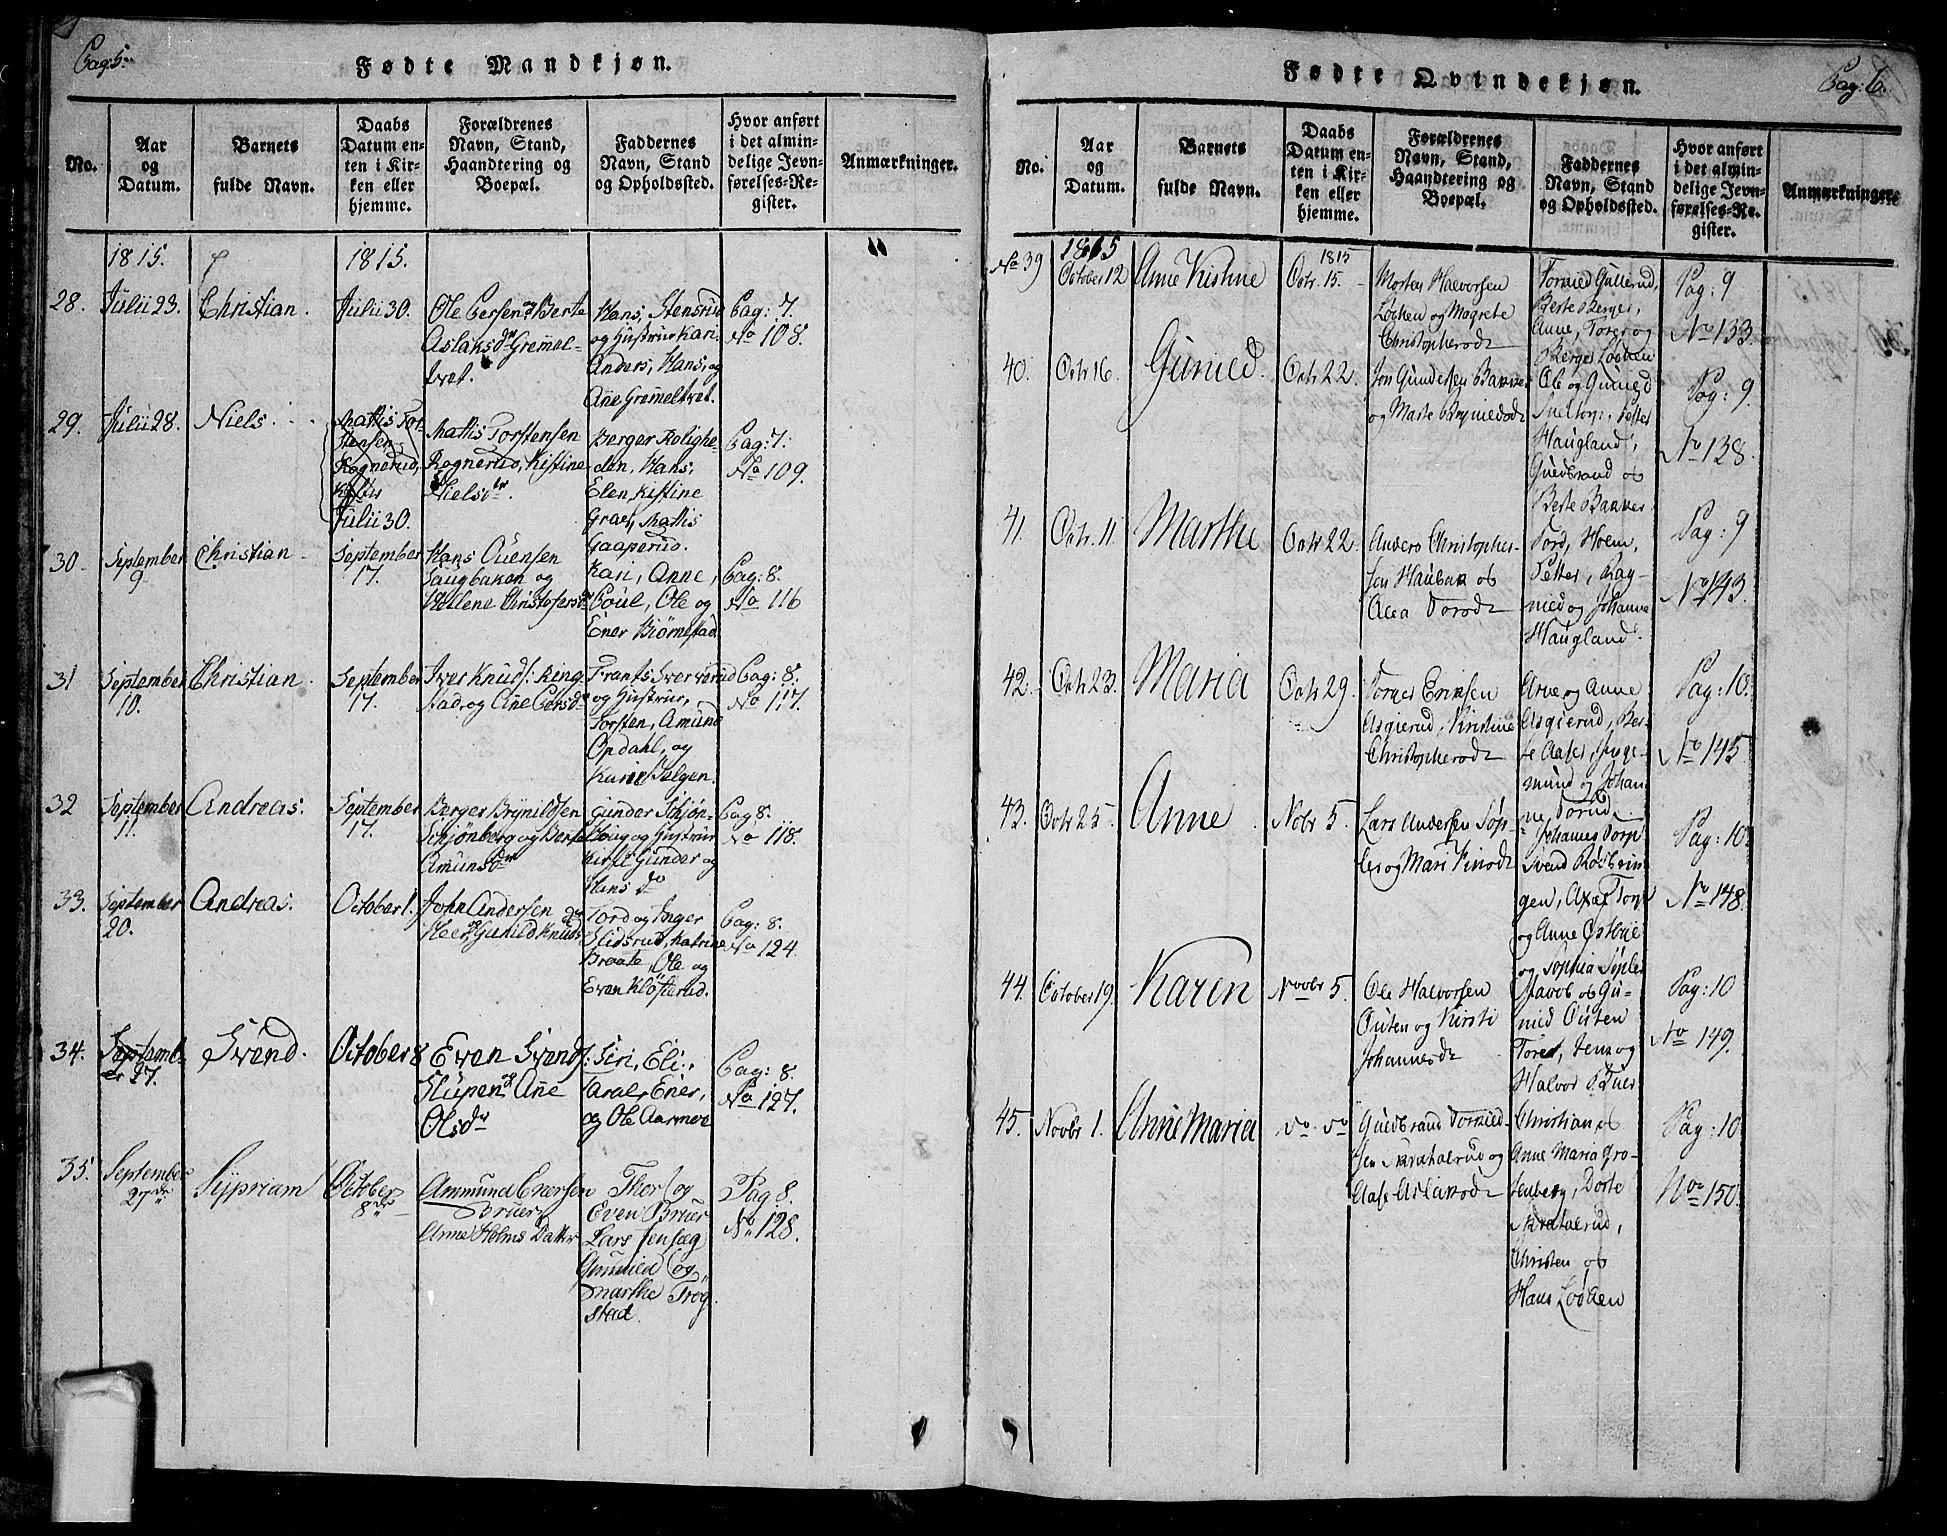 Pag: 5.
Fødte Mandkjøn.
No.
Aar
og
Datum.
Barnets
fulde Navn.
Daabs
Datum en-
ten i Kir-
ken eller
hjemme.
Forældrenes
Navn, Stand,
Haandtering og
Boepæl.
Faddernes
Navn, Stand
og Opholdssted.
Hvor anført
i det almin-
delige Jevn-
førelses-Re-
gister.
Anmærkninger.
1815.
1815.
28.
Julii 23.
Christian.
Julii 30.
Ole Persen og Berte
Aslaksdr Gremel-
tvet.
Hans, Stensrud
og Hustrue Kari
Anders, Hans, og
Ane Græmeltvet.
Pag: 7.
No 108.
29.
Julii 28.
Niels.
Mattis Tor-
stensen
Rognerud,
Julii 30.
Mattis Torstensen
Rognerud, Kistine
Nielsdr.
Berger Rolighe-
den, Hans,
Elen Kistine
Graer, Mattis
Gaaperud.
Pag: 7.
No 109.
30
September
9.
Christian
September
17.
Hans Ouensen
Haugbakken og
Hellene Christofersdr
Kari, Anne,
Poul, Ole og
Ener Biørnestad.
Pag: 8.
No 116
31
September
10.
Christian.
September
17.
Iver Knuds: Ring-
stad og Ane Persdr
Frants Sververud
og Hustrue,
Torsten, Amund
Opdahl, og
Karie Dalgen.
Pag: 8.
No 117.
32
September
11.
Andreas.
September
17.
Berger Brynildsen
Schjønberg og Berte
Amunsdr
Gunder Schjøn-
houg og Hustrue
Kersti Gunder og
Hans do
Pag 8.
No 118.
33.
September
20.
Andreas.
October 1.
John Andersen
Heer og Gunild Knudsdr
Tord og Inger
Slidsrud, Katrine
Braate, Ole og
Even Kløfterud.
Pag: 8.
No 124.
34.
Septemb-
er 27.
Svend.
October 8
Even Svends:
Slupen og Ane
Olsdr
Siri, Eli,
Taral, Ener,
og Ole Aarmoe
Pag: 8.
No 127.
35.
September
27de
Sypriam
October
8de
Ammund Eversen
Bruer
Anne Helms Datter
Thor og
Even Bruer
Lars Jensæg
Gunnild og
Marthe Trøg
stad.
Pag 8.
No 128.
Pag: 6.
Fødte Qvindekjøn.
No.
Aar
og
Datum.
Barnets
fulde Navn.
Daabs
Datum en-
ten i Kir-
ken eller
hjemme.
Forældrenes
Navn, Stand,
Haandtering og
Boepæl.
Faddernes
Navn, Stand
og Opholdssted.
Hvor anført
i det almin-
delige Jevn-
førelses-Re-
gister.
Anmærkninger.
1815
1815
No 39
October 12
Anne Kistine
Octr. 15.
Morten Halvorsen
Løchen og Magrete
Christophersdr
Tormod Gullerud,
Berte Berger,
Anne, Torer og
Berger Løchen
Pag: 9
No 133.
40.
Octr 16.
Guned.
Octr 22.
Jon Gundersen Bakker
og Marte Brynildsdr
Ole og Guned
Sneltorp, Petter
Haugland,
Guldbrand og
Berte Bakker
Pag: 9.
No 138.
41.
Octr. 11.
Marthe
Octr 22.
Anders Christopher-
sen Haubak og
Alea Torsdr
Tord, Hoem,
Petter, Rag-
nild og Johanne
Haugland.
Pag: 9
No 143.
42.
Octr 23.
Maria
Octr 29.
Torger Eriksen
Asgierud, Kirstine
Christophersdr
Arne og Anne
Asgierud, Ber-
te Aase, Inge-
mund og Johan-
ne Torud
Pag: 10.
No 145
43.
Octr 25.
Anne
Nobr 5.
Lars Andersen Søp-
ler og Mari
Johannes Torp
Svend Røsbrin-
gen, Axel Torp
og Anne Østbye
og Sophia Søpler
Pag: 10
No 148.
44.
October 19.
Karen
Novbr 5.
Ole Halvorsen
Outen og Kirsti
Johannesdr
Jakob og Gu-
nild Outen
Torer, Jens og
Halvor Bruer
Pag: 10
No 149.
45.
Novbr 1.
Anne Maria
do do
Guldbrand Tormod-
sen Skratalrud og
Aase Aslaksdr
Christian og
Anne Maria Gro-
tenberg, Dorte
Skratalrud,
Christen og
Hans Løchen
Pag: 10
No 150.